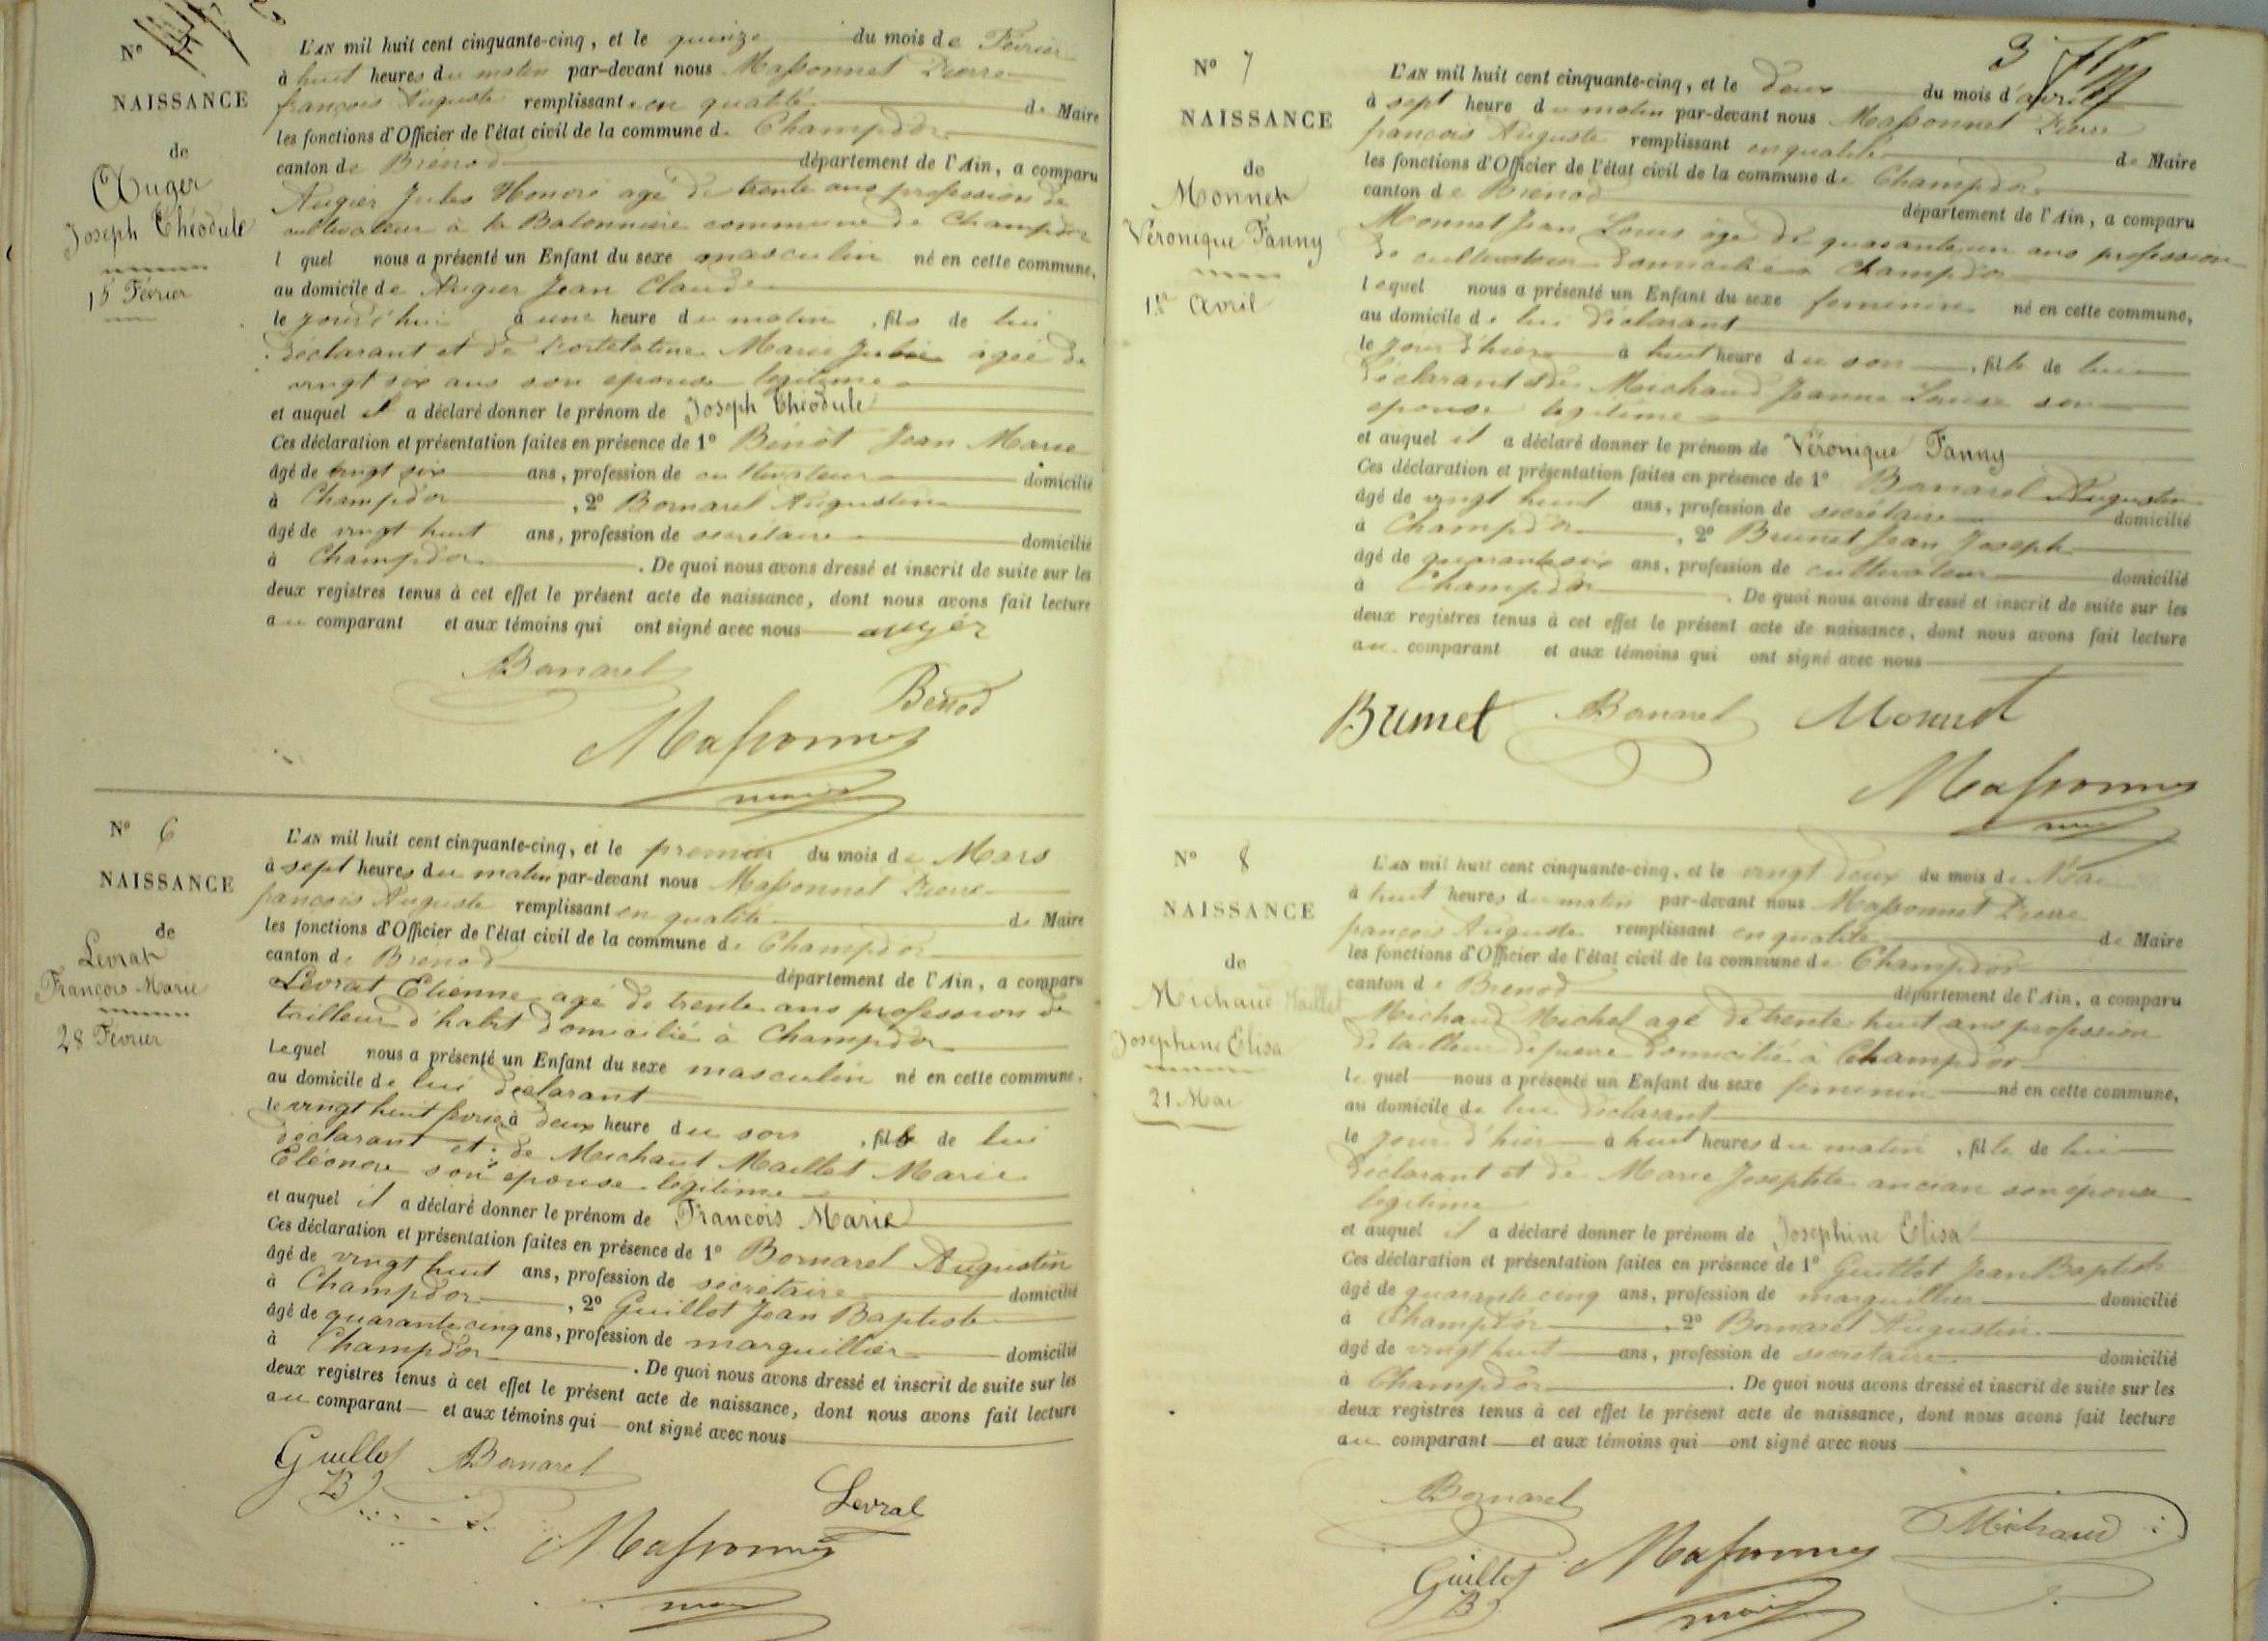 Nº
NAISSANCE
de
Auger
Joseph Théodule
15 Février
L'AN mil huit cent cinquante-cinq, et le quinze du mois de Février
à huit heures du matin par-devant nous Massonnet Pierre
françois Auguste remplissant en qualité de Maire
les fonctions d'Officier de l'état civil de la commune de Champdor
canton de Brénod département de l'Ain, a comparu
Augier Jules Honoré agé de trente ans profession de
cultivateur à la Batonnière commune de Champdor
l quel nous a présenté un Enfant du sexe masculin né en cette commune,
au domicile de Augier Jean Claude
le jourd'hui à une heure du matin, fils de lui
déclarant et de Marie Julie agée de
vingt six ans son epouse legitime
et auquel il a déclaré donner le prénom de Joseph Théodule
Ces déclaration et présentation faites en présence de 1º Bénot Jean Marie
âgé de vingt six ans, profession de cultivateur domicilié
à Champdor, 2º Bornarel Augustin
âgé de vingt huit ans, profession de secretaire domicilié
à Champdor. De quoi nous avons dressé et inscrit de suite sur les
deux registres tenus à cet effet le présent acte de naissance, dont nous avons fait lecture
au comparant et aux témoins qui ont signé avec nous augér
Bornarel
Bénod
Massonnet
maire
Nº 6
NAISSANCE
de
Levrat
François Marie
28 Février
L'AN mil huit cent cinquante-cinq, et le premier du mois de Mars
à sept heures du matin par-devant nous Massonnet Pierre
françois Auguste remplissant en qualité de Maire
les fonctions d'Officier de l'état civil de la commune de Champdor
canton de Brenod département de l'Ain, a comparu
Levrat Etienne agé de trente ans profession de
tailleur d'habit domicilié à Champdor
Lequel nous a présenté un Enfant du sexe masculin né en cette commune,
au domicile de lui declarant
le vingt huit fevrier à deux heure du soir, fils de lui
déclarant et de Michaut Maillet Marie
Eléonore son epouse legitime
et auquel il a déclaré donner le prénom de François Marie
Ces déclaration et présentation faites en présence de 1º Bornarel Augustin
âgé de vingt huit ans, profession de secrétaire domicilié
à Champdor, 2º Guillot Jean Baptiste
âgé de quarante cinq ans, profession de marguillier domicilié
à Champdor. De quoi nous avons dressé et inscrit de suite sur les
deux registres tenus à cet effet le présent acte de naissance, dont nous avons fait lecture
au comparant et aux témoins qui ont signé avec nous
Guillot Bornarel
B
Levrat
Massonnet
maire
3
Nº 7
NAISSANCE
de
Monnet
Véronique Fanny
1er Avril
L'AN mil huit cent cinquante-cinq, et le deux du mois d'avril
à sept heure du matin par-devant nous Massonnet Pierre
françois Auguste remplissant en qualité de Maire
les fonctions d'Officier de l'état civil de la commune de Champdor
canton de Brenod département de l'Ain, a comparu
Monnet Jean Louis agé de quarante un ans profession
de cultivateur domicilié à Champdor
lequel nous a présenté un Enfant du sexe feminin né en cette commune,
au domicile de lui déclarant
le jour d'hier à huit heure du soir, fille de lui
déclarant et de Michaud Jeanne Louise son
epouse legitime
et auquel il a déclaré donner le prénom de Véronique Fanny
Ces déclaration et présentation faites en présence de 1º Bornarel Augustin
âgé de vingt huit ans, profession de secrétaire domicilié
à Champdor, 2º Brunet Jean Joseph
âgé de quarante six ans, profession de cultivateur domicilié
à Champdor. De quoi nous avons dressé et inscrit de suite sur les
deux registres tenus à cet effet le présent acte de naissance, dont nous avons fait lecture
au comparant et aux témoins qui ont signé avec nous
Brunet Bornarel Monnet
Massonnet
maire
Nº 8
NAISSANCE
de
Michaud Maillet
Josephine Elisa
21 Mai
L'AN mil huit cent cinquante-cinq, et le vingt deux du mois de Mai
à huit heures du matin par-devant nous Massonnet Pierre
françois Auguste remplissant en qualité de Maire
les fonctions d'Officier de l'état civil de la commune de Champdor
canton de Brenod département de l'Ain, a comparu
Michaud Michel agé de trente huit ans profession
de tailleur de pierre domicilié à Champdor
le quel nous a présenté un Enfant du sexe feminin né en cette commune,
au domicile de lui déclarant
le jour d'hier à huit heures du matin, fille de lui
déclarant et de Marie Josephte ancian son épouse
légitime
et auquel il a déclaré donner le prénom de Josephine Elisa
Ces déclaration et présentation faites en présence de 1º Guillot Jean Baptiste
âgé de quarante cinq ans, profession de marguillier domicilié
à Champdor, 2º Bornarel Augustin
âgé de vingt huit ans, profession de secretaire domicilié
à Champdor. De quoi nous avons dressé et inscrit de suite sur les
deux registres tenus à cet effet le présent acte de naissance, dont nous avons fait lecture
au comparant et aux témoins qui ont signé avec nous
Bornarel
Michaud
Guillot Massonnet
B
maire